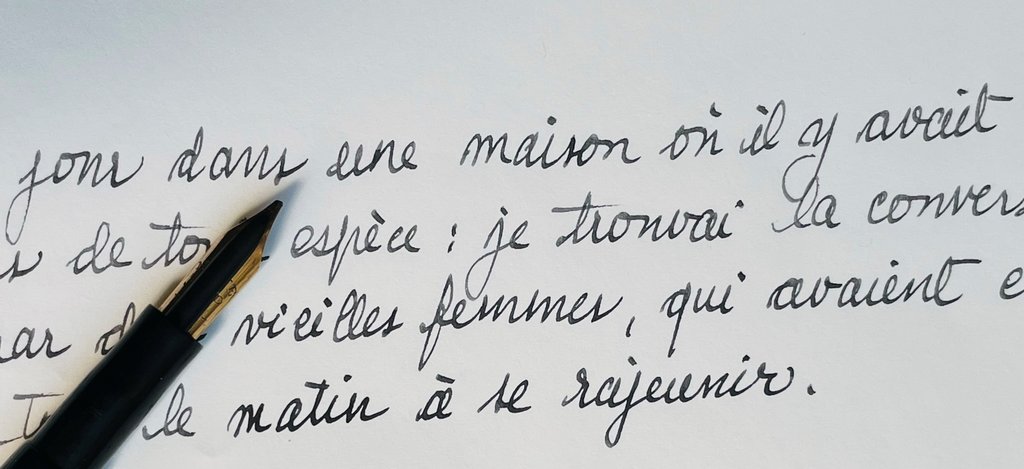 jour dans une maison où il y avait
s de to espèce : je trouvai la convers
ar d vieilles femmes, qui avaient e
le matin à se rajeunir.